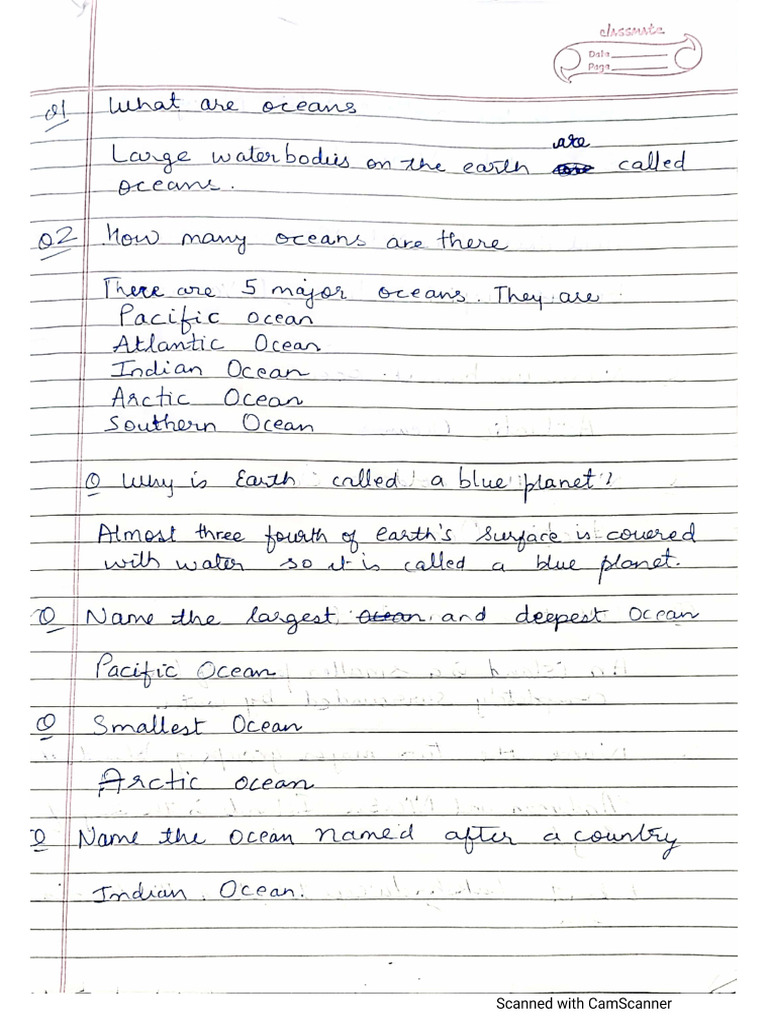 classmate
Date
Page
Q1 What are oceans
are
Large waterbodies on the earth called
oceans.
Q2 How many oceans are there
There are 5 major oceans. They are
Pacific ocean
Atlantic Ocean
Indian Ocean
Arctic Ocean
Southern Ocean
Q Why is Earth called a blue planet?
Almost three fourth of earth's surface is covered
with water so it is called a blue planet.
Q Name the largest ocean and deepest Ocean
Pacific Ocean
Q Smallest Ocean
Arctic ocean
Q Name the ocean named after a country
Indian Ocean.
Scanned with CamScanner